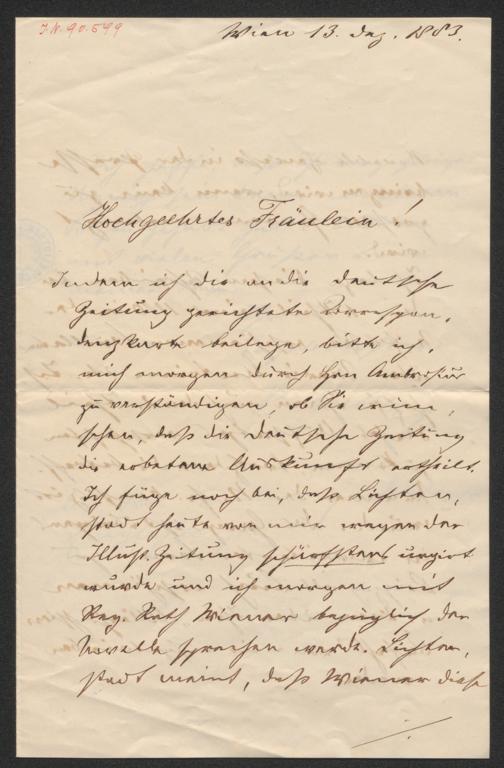 J.N. 90.599
Wien 13. Dez. 1883.
Hochgeehrtes Fräulein!
Indem ich die an die Deutsche
Zeitung gerichtete Correspon-
denzkarte beilege, bitte ich,
mich morgen durch Hrn Ambrosius
zu verständigen, ob Sie wün-
schen, daß die Deutsche Zeitung
die erbetene Auskunft ertheilt.
Ich füge noch bei, daß Lichten-
stadt heute von mir wegen der
Illust. Zeitung schärfstens urgirt
wurde und ich morgen mit
Reg. Rath Wiener bezüglich der
Novelle sprechen werde. Lichten-
stadt meint, daß Wiener diese
./.